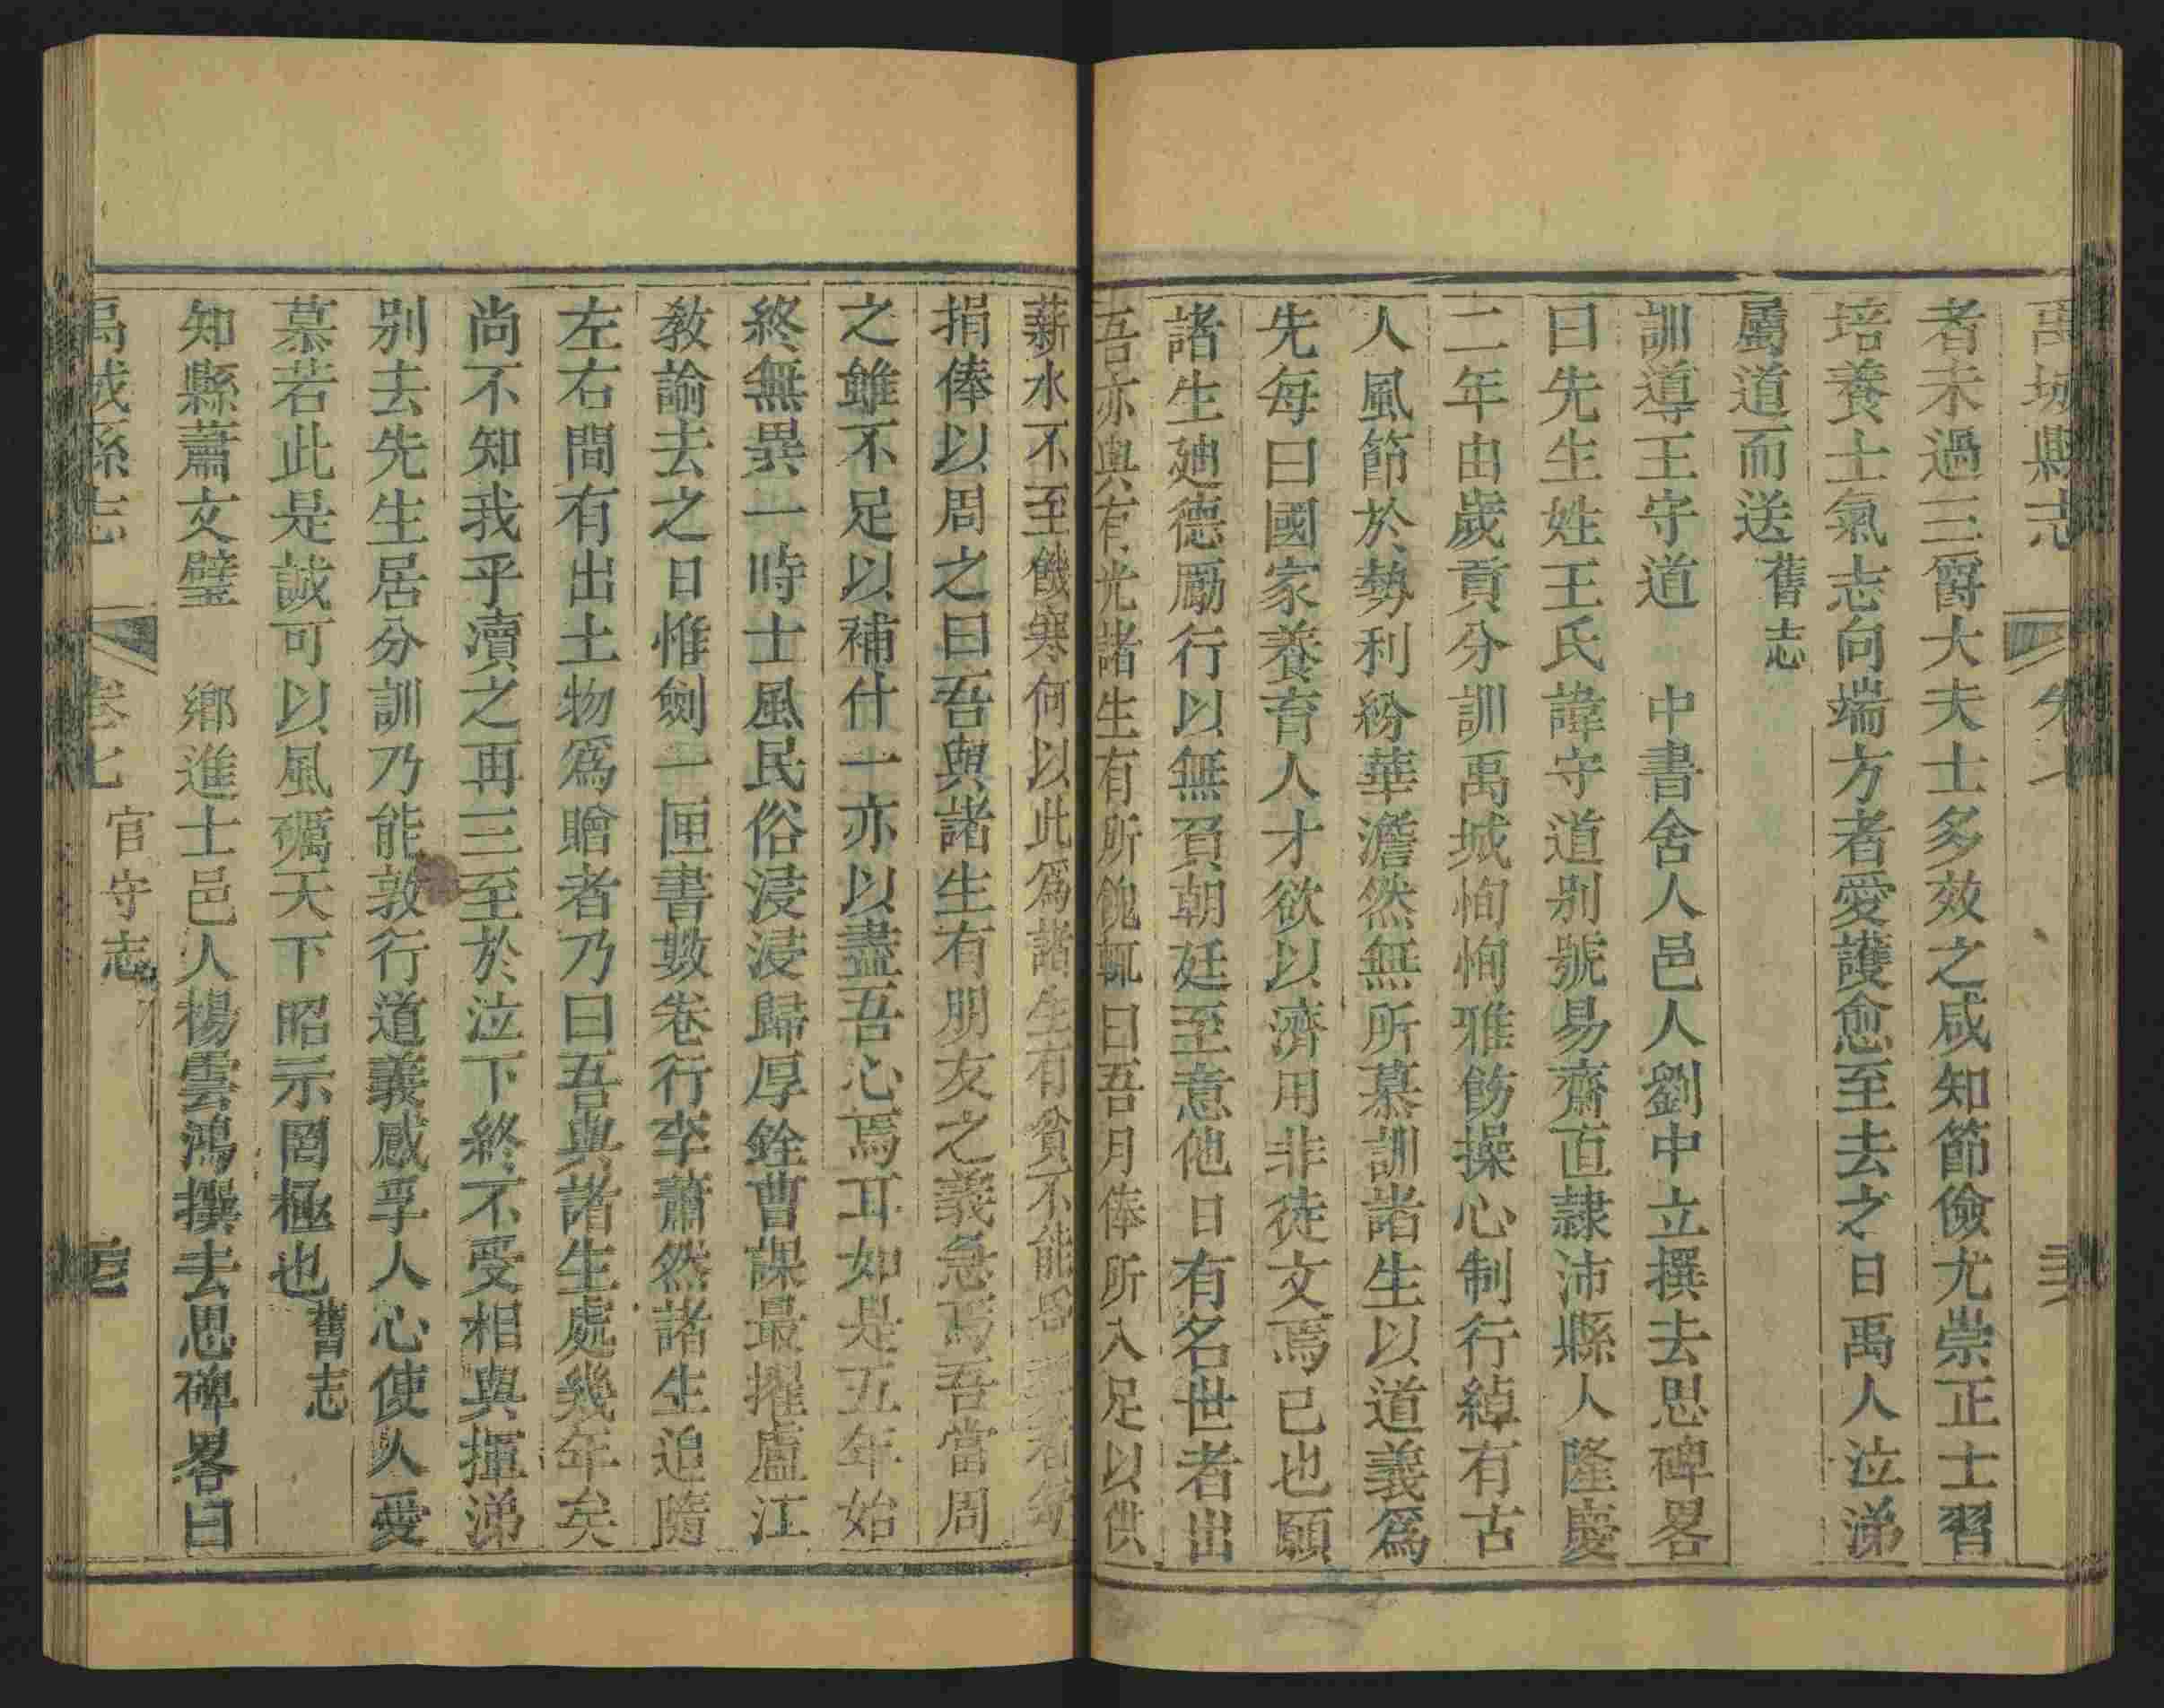 禹城縣志 卷七
者未過三爵大夫士多效之咸知節儉尤崇正士習
培養士氣志向端方者愛護愈至去之日禹人泣涕
屬道而送舊志
訓導王守道 中書舍人邑人劉中立撰去思碑畧
曰先生姓王氏諱守道別號易齋直隸沛縣人隆慶
二年由歲貢分訓禹城恂恂雅飭操心制行綽有古
人風節於勢利紛華澹然無所慕訓諸生以道義爲
先每曰國家養育人才欲以濟用非徒文焉已也願
諸生廸德勵行以無負朝廷至意他日有名世者出
吾亦與有光諸生有所餽輒曰吾月俸所入足以供
薪水不至饑寒何以此爲諸生有貧不能
捐俸以周之曰吾與諸生有朋友之義急焉吾當周
之雖不足以補什一亦以盡吾心焉耳如是五年始
終無異一時士風民俗浸浸歸厚銓曹課最擢廬江
敎諭去之日惟劍一匣書數卷行李蕭然諸生追隨
左右間有出土物爲贈者乃曰吾與諸生處幾年矣
尚不知我乎瀆之再三至於泣下終不受相與揮涕
別去先生居分訓乃能敦行道義感孚人心使人愛
慕若此是誠可以風礪天下昭示罔極也舊志
知縣蕭文璧 鄉進士邑人楊雲鴻撰去思碑畧曰
禹城縣志 卷七 官守志